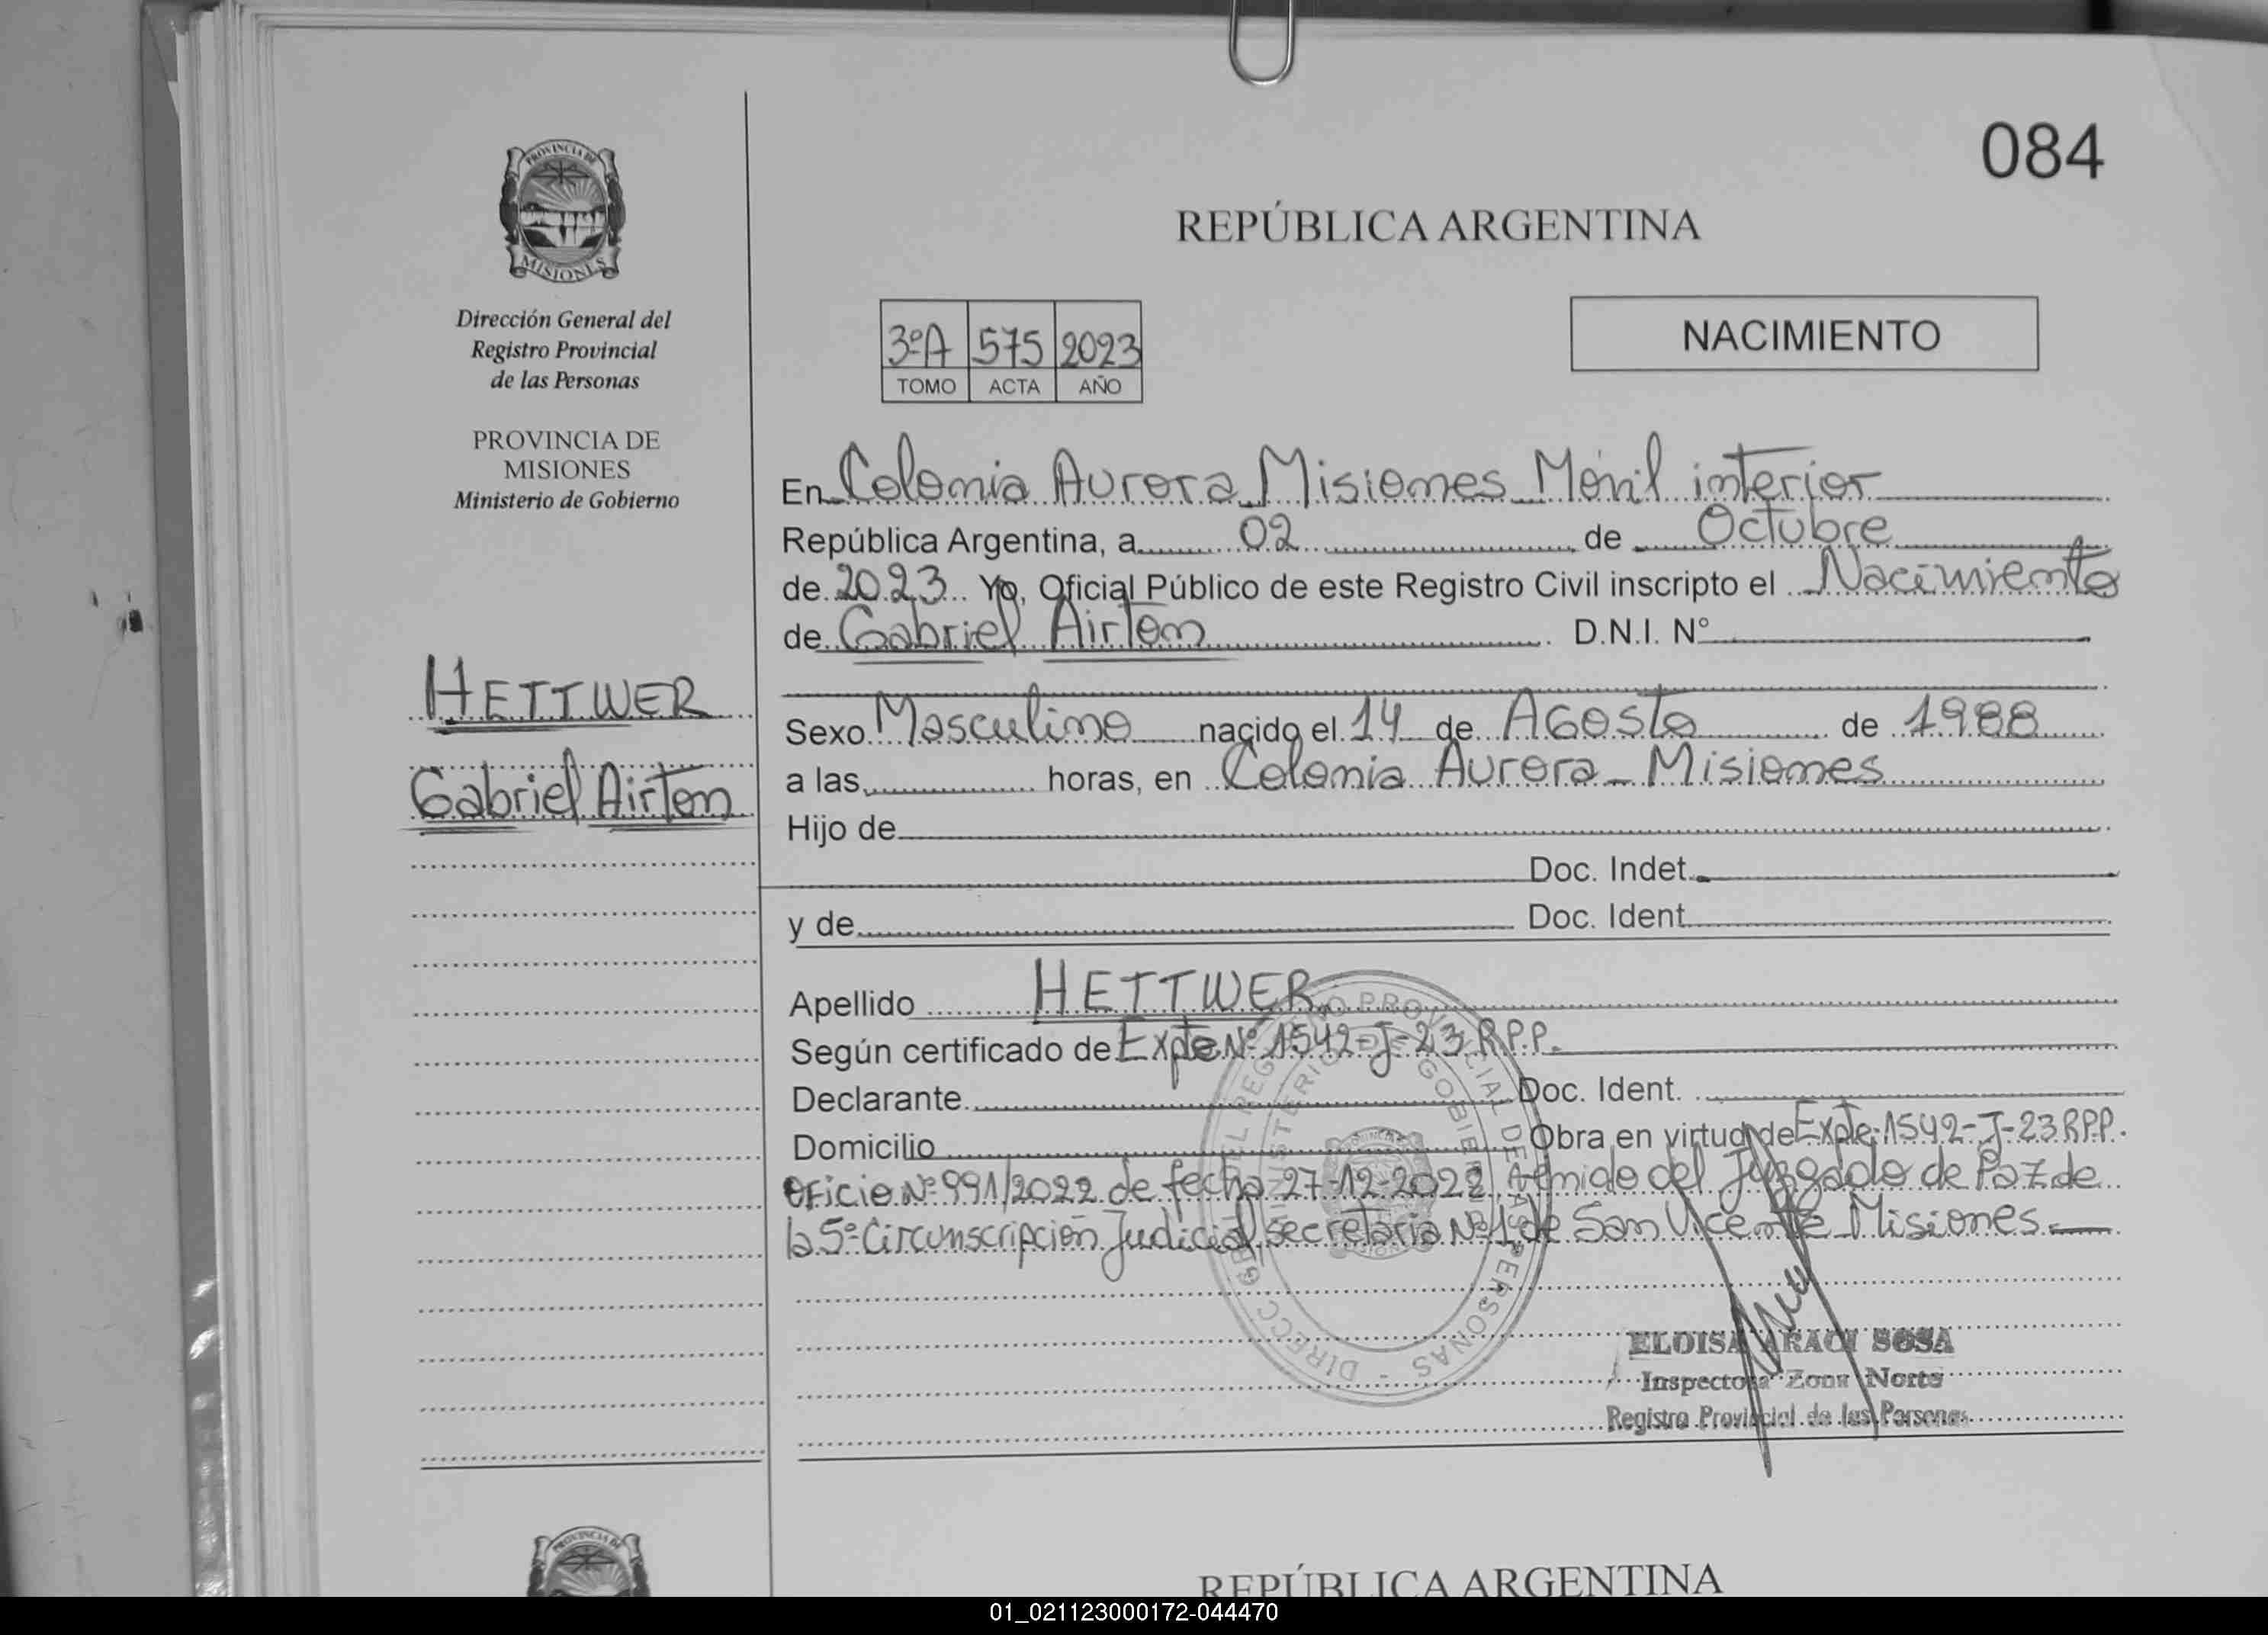 084
PROVINCIA DE
MISIONES
Dirección General del
Registro Provincial
de las Personas
PROVINCIA DE
MISIONES
Ministerio de Gobierno
HETTWER
Gabriel Airton
REPÚBLICA ARGENTINA
3ºA 575 2023
TOMO ACTA AÑO
NACIMIENTO
En Colonia Aurora Misiones Móvil interior
República Argentina, a 02 de Octubre
de 2023 Yo, Oficial Público de este Registro Civil inscripto el Nacimiento
de Gabriel Airton D.N.I. Nº
Sexo Masculino nacido el 14 de Agosto de 1988
a las horas, en Colonia Aurora - Misiones
Hijo de
Doc. Indet.
y de Doc. Ident.
Apellido HETTWER
Según certificado de Expte Nº 1542-J-23 R.P.P.
Declarante Doc. Ident.
Domicilio Obra en virtud de Expte. 1542-J-23 R.P.P.
Oficio Nº 991/2022 de fecha 27-12-2022, del Juzgado de Paz de
la 5º Circunscripción Judicial, secretaria Nº 1 de San Vicente Misiones.
DIRECC. GRAL. DEL REGISTRO PROVINCIAL DE LAS PERSONAS -
MINISTERIO DE GOBIERNO
ELOISA ARACI SOSA
Inspectora Zona Norte
Registro Provincial de las Personas
PROVINCIA DE
REPÚBLICA ARGENTINA
01_021123000172-044470